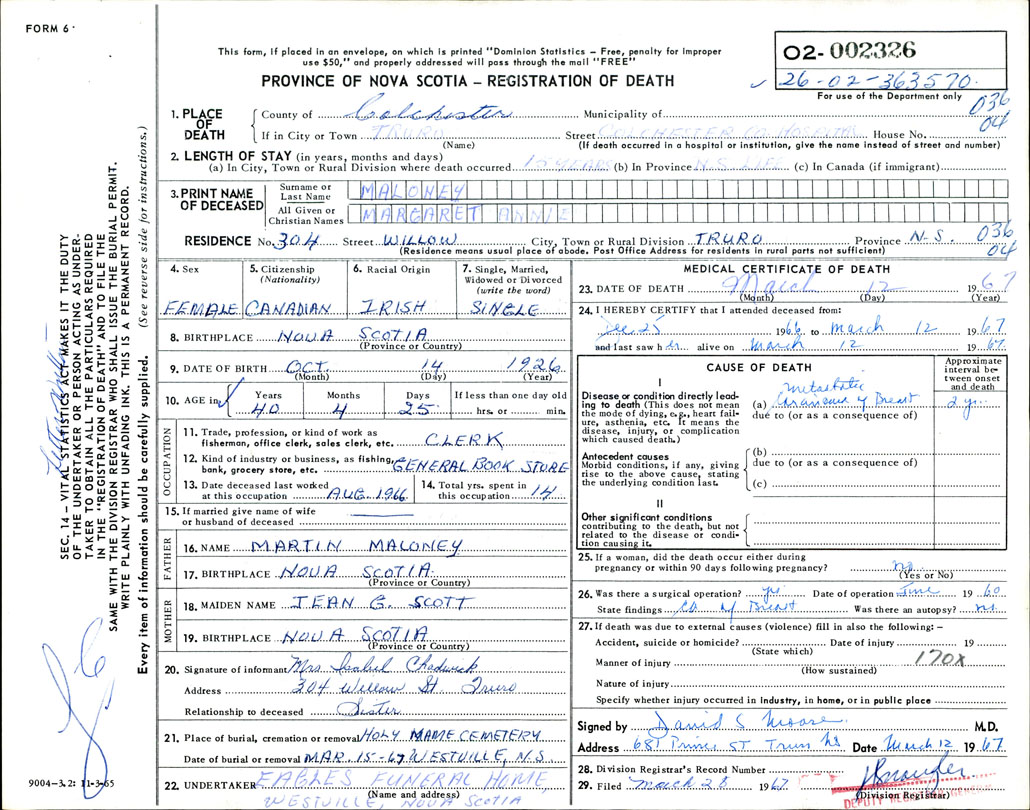 FORM 6
This form, if placed in an envelope, on which is printed "Dominion Statistics – Free, penalty for improper
use $50," and properly addressed will pass through the mail "FREE"
PROVINCE OF NOVA SCOTIA – REGISTRATION OF DEATH
02-002326
26-02-363570
For use of the Department only
036
04
1. PLACE OF DEATH
County of Colchester Municipality of
If in City or Town TRURO Street COLCHESTER CO. HOSPITAL House No.
(Name) (If death occurred in a hospital or institution, give the name instead of street and number)
2. LENGTH OF STAY (in years, months and days)
(a) In City, Town or Rural Division where death occurred 15 YEARS (b) In Province N.S. LIFE (c) In Canada (if immigrant)
3. PRINT NAME OF DECEASED
Surname or Last Name MALONEY
All Given or Christian Names MARGARET ANNIE
RESIDENCE No. 304 Street WILLOW City, Town or Rural Division TRURO Province N.S.
036
04
(Residence means usual place of abode. Post Office Address for residents in rural parts not sufficient)
4. Sex
FEMALE
5. Citizenship (Nationality)
CANADIAN
6. Racial Origin
IRISH
7. Single, Married, Widowed or Divorced (write the word)
SINGLE
8. BIRTHPLACE NOVA SCOTIA
(Province or Country)
9. DATE OF BIRTH OCT. 14 1926
(Month) (Day) (Year)
10. AGE in
Years Months Days If less than one day old
40 4 25 hrs. or min.
OCCUPATION
11. Trade, profession, or kind of work as
fisherman, office clerk, sales clerk, etc. CLERK
12. Kind of industry or business, as fishing,
bank, grocery store, etc. GENERAL BOOK STORE
13. Date deceased last worked
at this occupation AUG. 1966
14. Total yrs. spent in
this occupation 14
15. If married give name of wife
or husband of deceased
FATHER
16. NAME MARTIN MALONEY
17. BIRTHPLACE NOVA SCOTIA
(Province or Country)
MOTHER
18. MAIDEN NAME JEAN G. SCOTT
19. BIRTHPLACE NOVA SCOTIA
(Province or Country)
20. Signature of informant Mrs. Isabel Chadwick
Address 304 Willow St. Truro
Relationship to deceased Sister
21. Place of burial, cremation or removal HOLY NAME CEMETERY
Date of burial or removal MAR. 15-67 WESTVILLE, N.S.
22. UNDERTAKER EAGLES FUNERAL HOME,
(Name and address)
WESTVILLE, NOVA SCOTIA
MEDICAL CERTIFICATE OF DEATH
23. DATE OF DEATH March 12 1967
(Month) (Day) (Year)
24. I HEREBY CERTIFY that I attended deceased from:
Dec. 25 1966 to March 12 1967
and last saw her alive on March 12 1967
CAUSE OF DEATH
Approximate interval between onset and death
I
Disease or condition directly leading to death (This does not mean the mode of dying, e.g., heart failure, asthenia, etc. It means the disease, injury, or complication which caused death.)
metastatic
(a) Carcinoma of Breast 2 yr.
due to (or as a consequence of)
Antecedent causes
Morbid conditions, if any, giving rise to the above cause, stating the underlying condition last.
(b)
due to (or as a consequence of)
(c)
II
Other significant conditions
contributing to the death, but not related to the disease or condition causing it.
25. If a woman, did the death occur either during
pregnancy or within 90 days following pregnancy? no
(Yes or No)
26. Was there a surgical operation? yes Date of operation June 1960
State findings Ca of Breast Was there an autopsy? no.
27. If death was due to external causes (violence) fill in also the following: –
Accident, suicide or homicide? Date of injury 19
(State which)
Manner of injury 170X
(How sustained)
Nature of injury
Specify whether injury occurred in industry, in home, or in public place
Signed by David S Moore M.D.
Address 681 Prince ST Truro NS Date March 12 1967
28. Division Registrar's Record Number
29. Filed March 28 1967
(Division Registrar)
DEPUTY
SEC. 14 – VITAL STATISTICS ACT MAKES IT THE DUTY
OF THE UNDERTAKER OR PERSON ACTING AS UNDER-
TAKER TO OBTAIN ALL THE PARTICULARS REQUIRED
IN THE "REGISTRATION OF DEATH" AND TO FILE THE
SAME WITH THE DIVISION REGISTRAR WHO SHALL ISSUE THE BURIAL PERMIT.
WRITE PLAINLY WITH UNFADING INK. THIS IS A PERMANENT RECORD.
Every item of information should be carefully supplied. (See reverse side for instructions.)
9004-3.2: 11-3-65